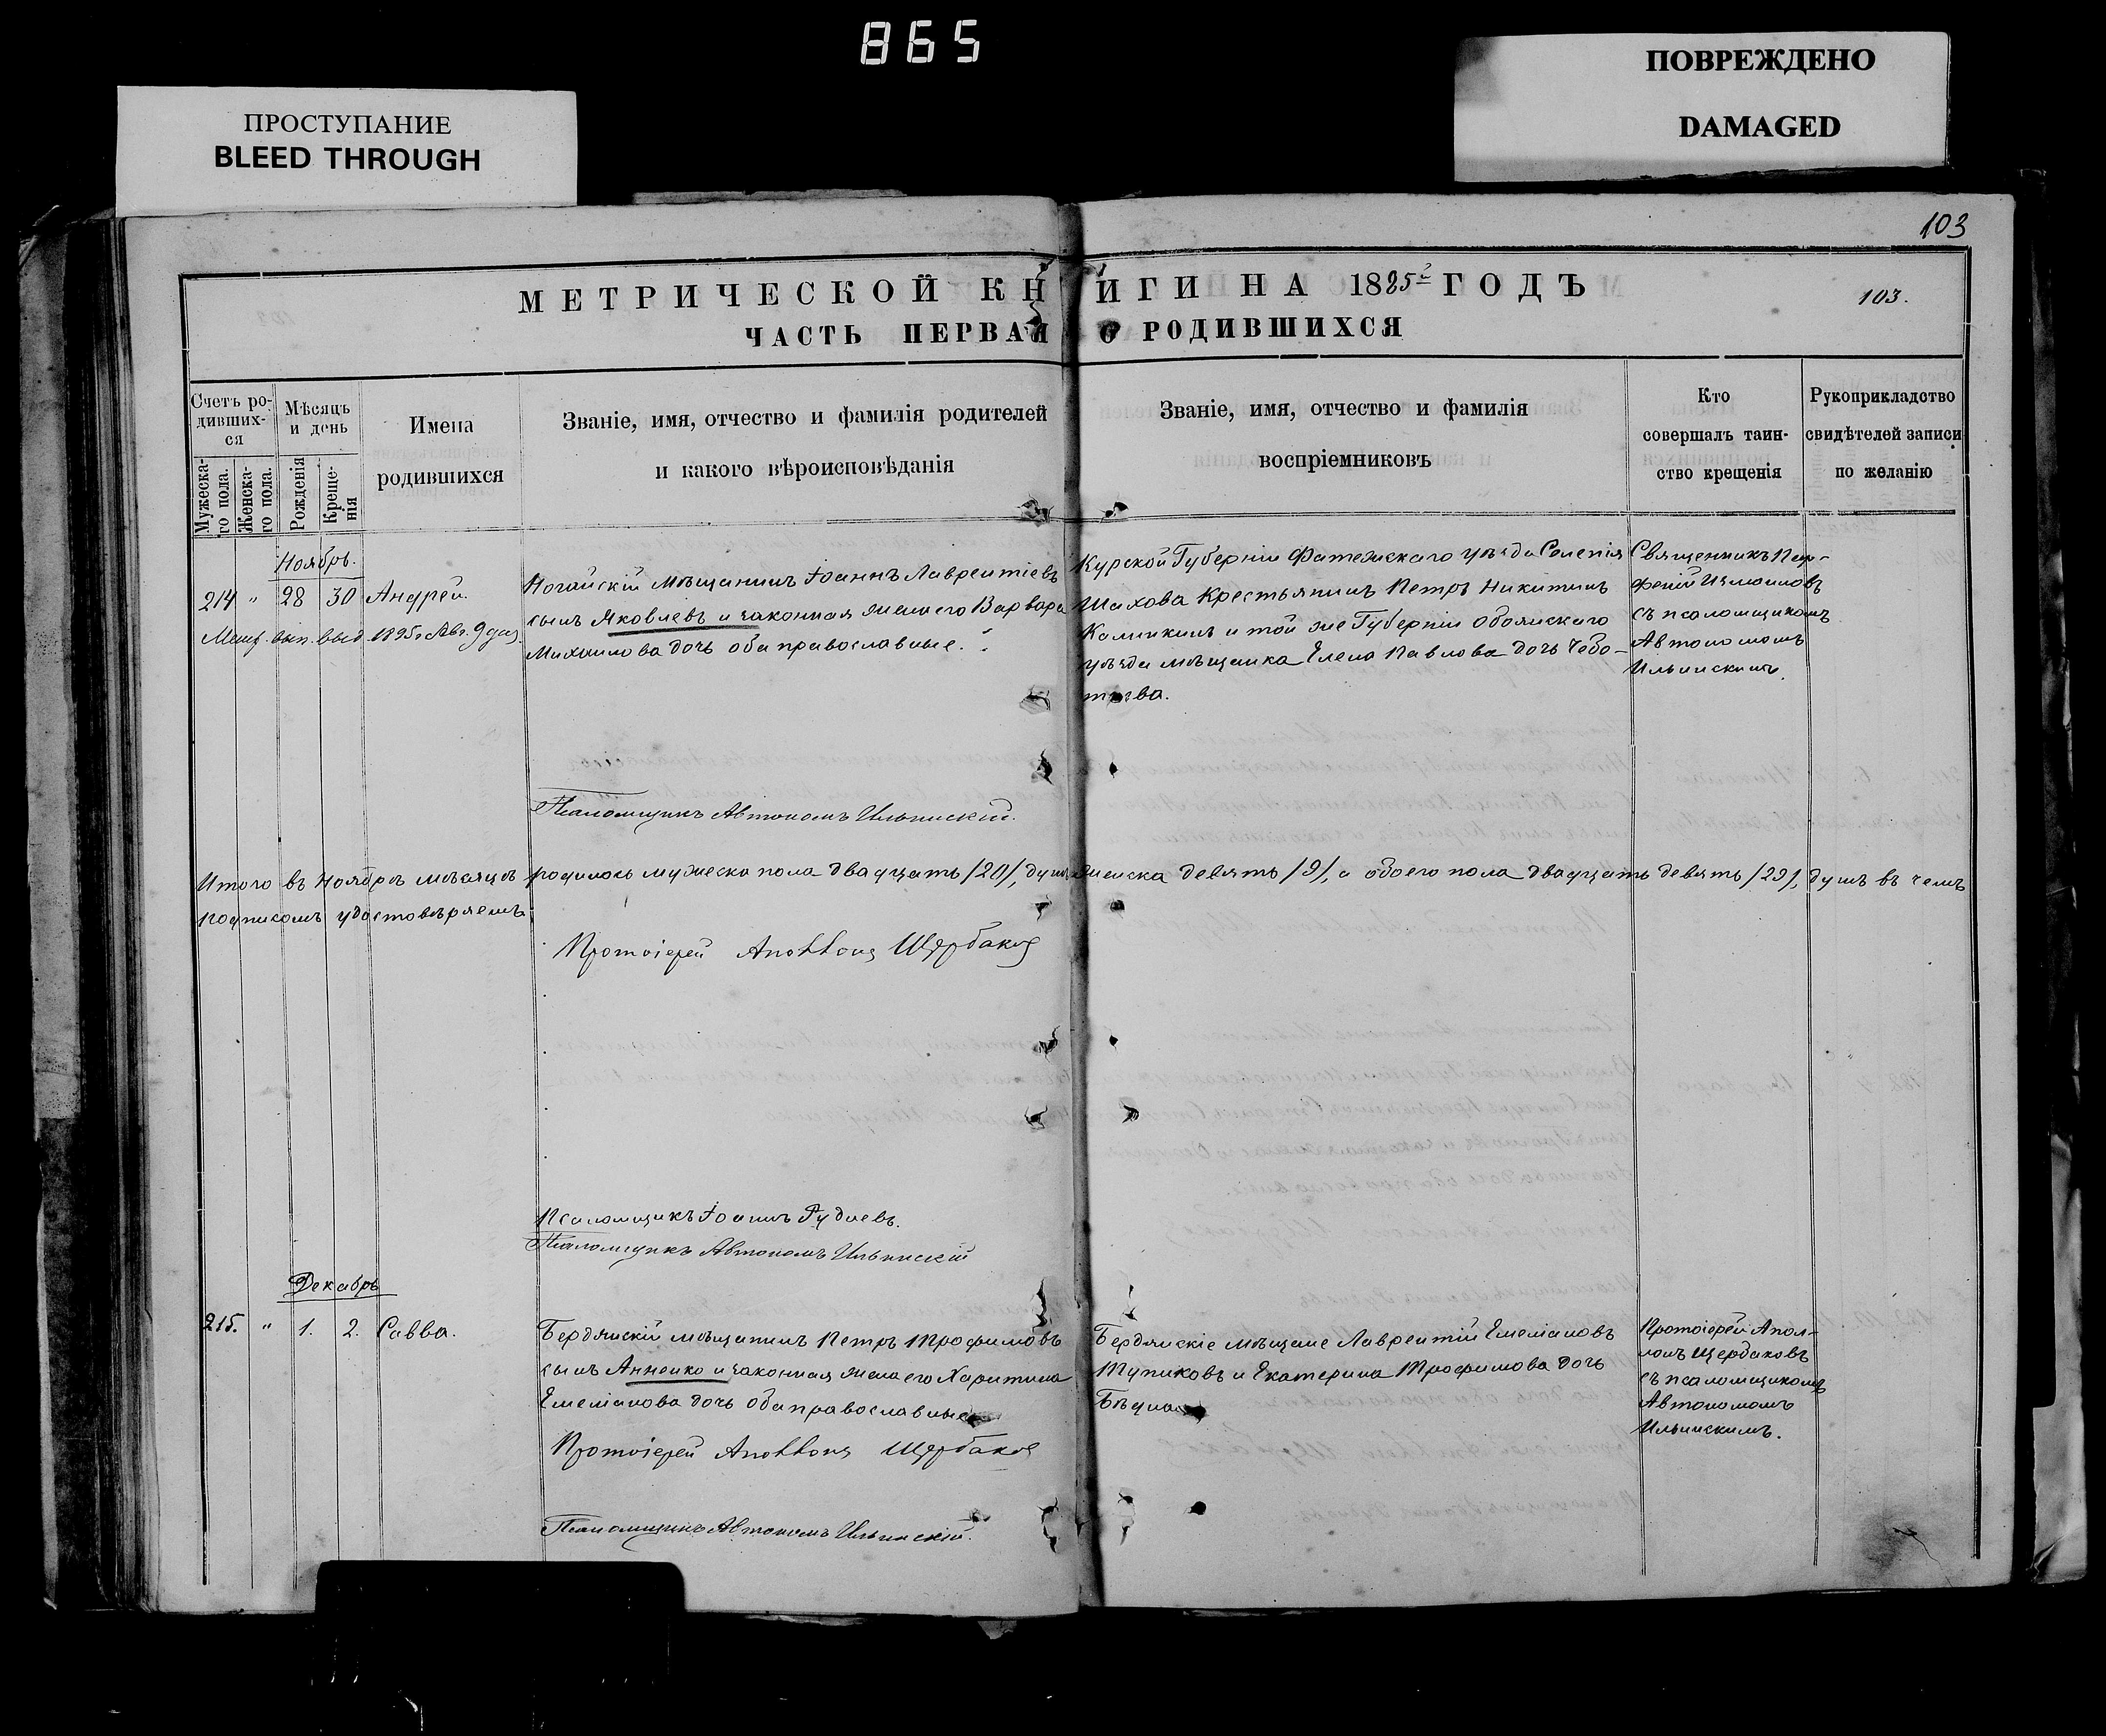 865
ПРОСТУПАНИЕ
BLEED THROUGH
ПОВРЕЖДЕНО
DAMAGED
103
МЕТРИЧЕСКОЙ КНИГИ НА 1885 ГОДЪ
103.
ЧАСТЬ ПЕРВАЯ О РОДИВШИХСЯ
Счетъ ро-
дивших-
ся
Мужеска-
го пола.
Женска-
го пола.
Мѣсяцъ
и день
Рожденія
Креще-
нія
Имена
родившихся
Званіе, имя, отчество и фамилія родителей
и какого вѣроисповѣданія
Званіе, имя, отчество и фамилія
воспріемниковъ
Кто
совершалъ таин-
ство крещенія
Рукоприкладство
свидѣтелей записи
по желанію
Ноябрь.
214 " 28 30 Андрей.
вып. выд. 1895 г. Авг. 9 дня.
Ногайскій мѣщанинъ Іоаннъ Лаврентіевъ
сынъ Яковлевъ и законная жена его Варвара
Михаилова дочь оба православные.
Курской Губерніи Фатежскаго уѣзда Селенія
Шахова Крестьянинъ Петръ Никитинъ
Калинкинъ и той же Губерніи Обоянскаго
уѣзда мѣщанка Елена Павлова дочь Чебо-
Священникъ Пар-
феній Измаиловъ
съ псаломщикомъ
Автономомъ
Ильинскимъ.
Псаломщикъ Автономъ Ильинскій.
Итого въ Ноябрѣ мѣсяцѣ родилось мужеска пола двадцать /20/, душъ женска девять /9/, а обоего пола двадцать девять /29/, душъ въ чемъ
подписомъ удостовѣряемъ
Протоіерей Аполлонъ Щербаковъ
Псаломщикъ Іоаннъ Рудневъ.
Псаломщикъ Автономъ Ильинскій
Декабрь
215. " 1. 2. Савва.
Бердянскій мѣщанинъ Петръ Трофимовъ
сынъ Анненко и законная жена его Харитина
Емеліанова дочь оба православные
Бердянскіе мѣщане Лаврентій Емеліановъ
Тупиковъ и Екатерина Трофимова дочь
Протоіерей Апол-
лонъ Щербаковъ
съ псаломщикомъ
Автономомъ
Ильинскимъ.
Протоіерей Аполлонъ Щербаковъ
Псаломщикъ Автономъ Ильинскій.